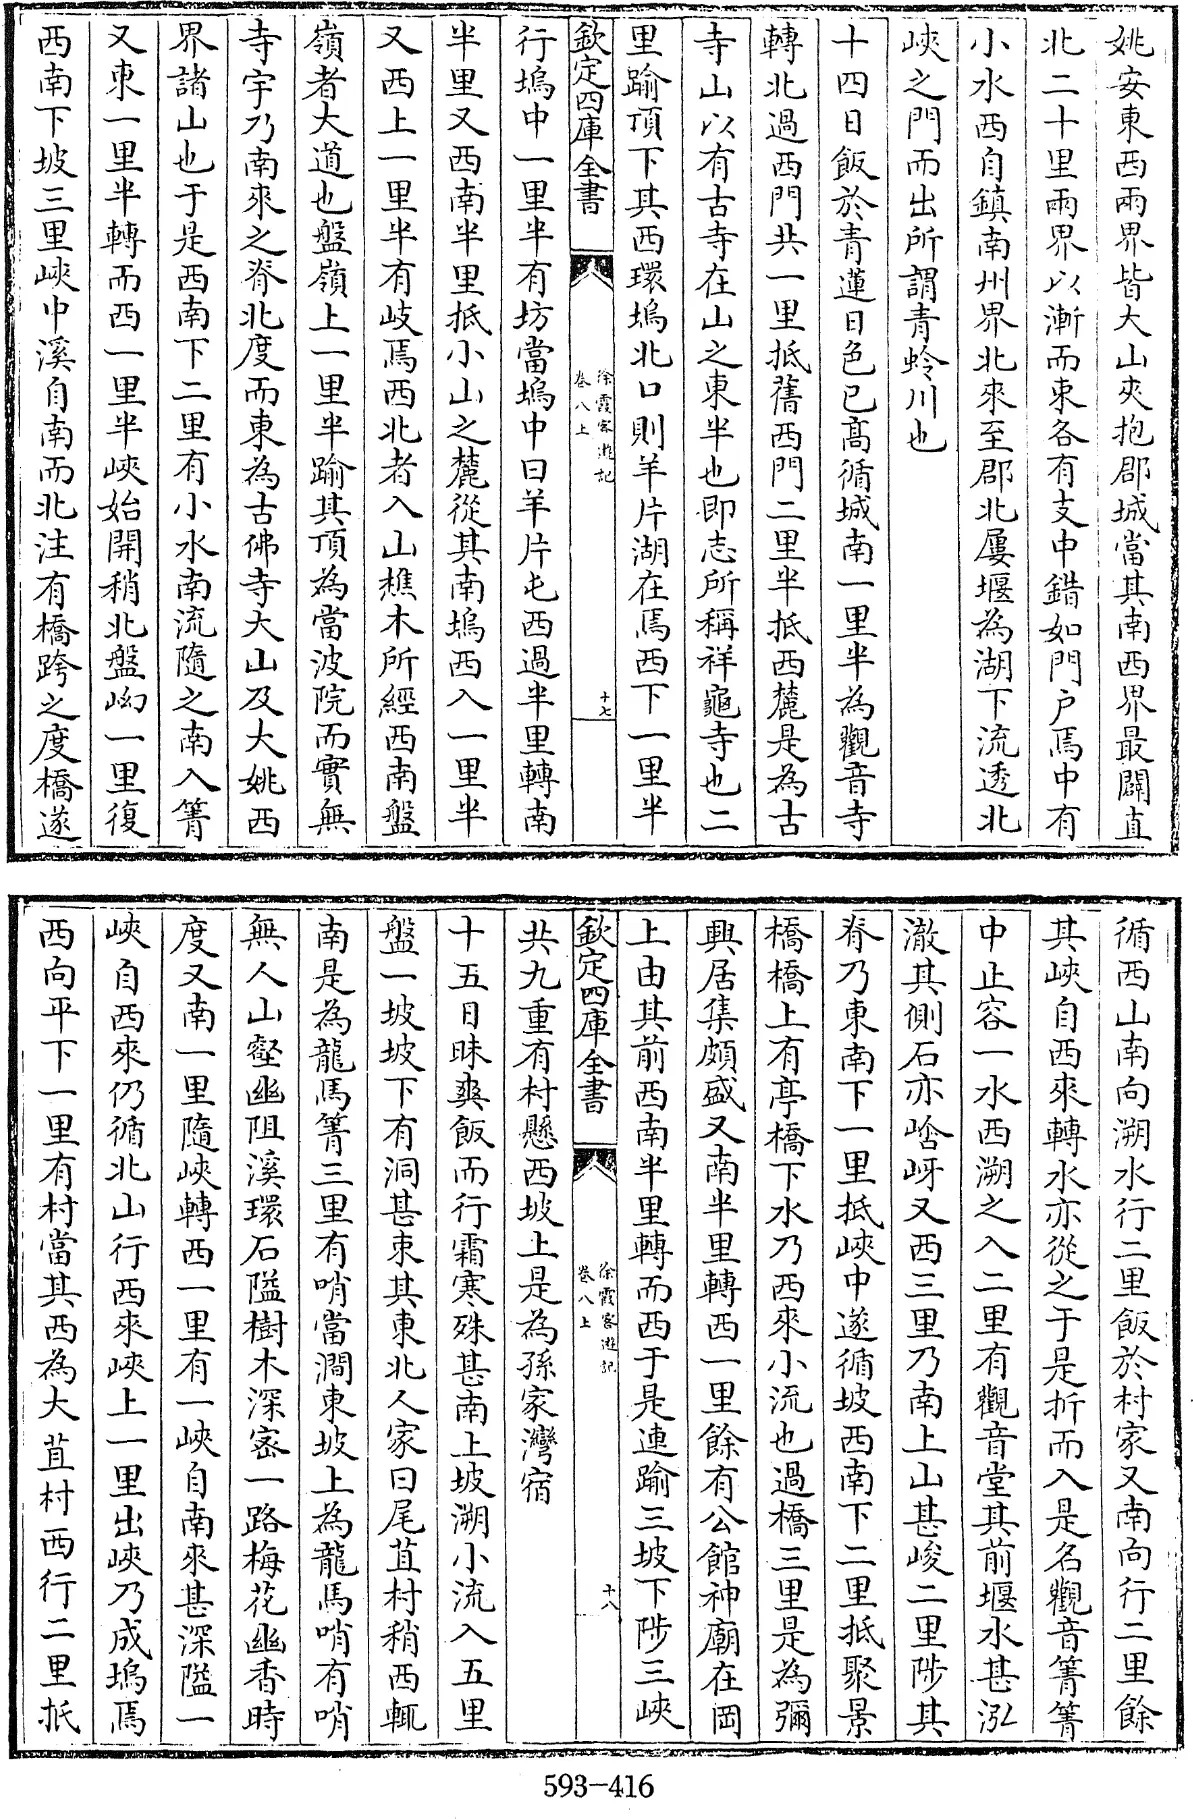 姚安東西兩界皆大山夾抱郡城當其南西界最闢直
北二十里兩界以漸而東各有支中錯如門户焉中有
小水西自鎮南州界北來至郡北屢堰為湖下流透北
峽之門而出所謂青蛉川也
十四日飯於青蓮日色已髙循城南一里半為觀音寺
轉北過西門共一里抵舊西門二里半抵西麓是為古
寺山以有古寺在山之東半也即志所稱祥龜寺也二
里踰頂下其西環塢北口則羊片湖在焉西下一里半
欽定四庫全書
徐霞客遊記
卷八上
十七
行塢中一里半有坊當塢中曰羊片屯西過半里轉南
半里又西南半里抵小山之麓從其南塢西入一里半
又西上一里半有岐焉西北者入山樵木所經西南盤
嶺者大道也盤嶺上一里半踰其頂為當波院而實無
寺宇乃南來之脊北度而東為古佛寺大山及大姚西
界諸山也于是西南下二里有小水南流隨之南入箐
又東一里半轉而西一里半峽始開稍北盤㘭一里復
西南下坡三里峽中溪自南而北注有橋跨之度橋遂
循西山南向溯水行二里飯於村家又南向行二里餘
其峽自西來轉水亦從之于是折而入是名觀音箐箐
中止容一水西溯之入二里有觀音堂其前堰水甚泓
澈其側石亦崆岈又西三里乃南上山甚峻二里陟其
脊乃東南下一里抵峽中遂循坡西南下二里抵聚景
橋橋上有亭橋下水乃西來小流也過橋三里是為彌
興居集頗盛又南半里轉西一里餘有公館神廟在岡
上由其前西南半里轉而西于是連踰三坡下陟三峽
欽定四庫全書
徐霞客遊記
卷八上
十八
共九重有村懸西坡上是為孫家灣宿
十五日昧爽飯而行霜寒殊甚南上坡溯小流入五里
盤一坡坡下有洞甚束其東北人家曰尾苴村稍西輒
南是為龍馬箐三里有哨當澗東坡上為龍馬哨有哨
無人山壑幽阻溪環石隘樹木深密一路梅花幽香時
度又南一里隨峽轉西一里有一峽自南來甚深隘一
峽自西來仍循北山行西來峽上一里出峽乃成塢焉
西向平下一里有村當其西為大苴村西行二里抵
593-416